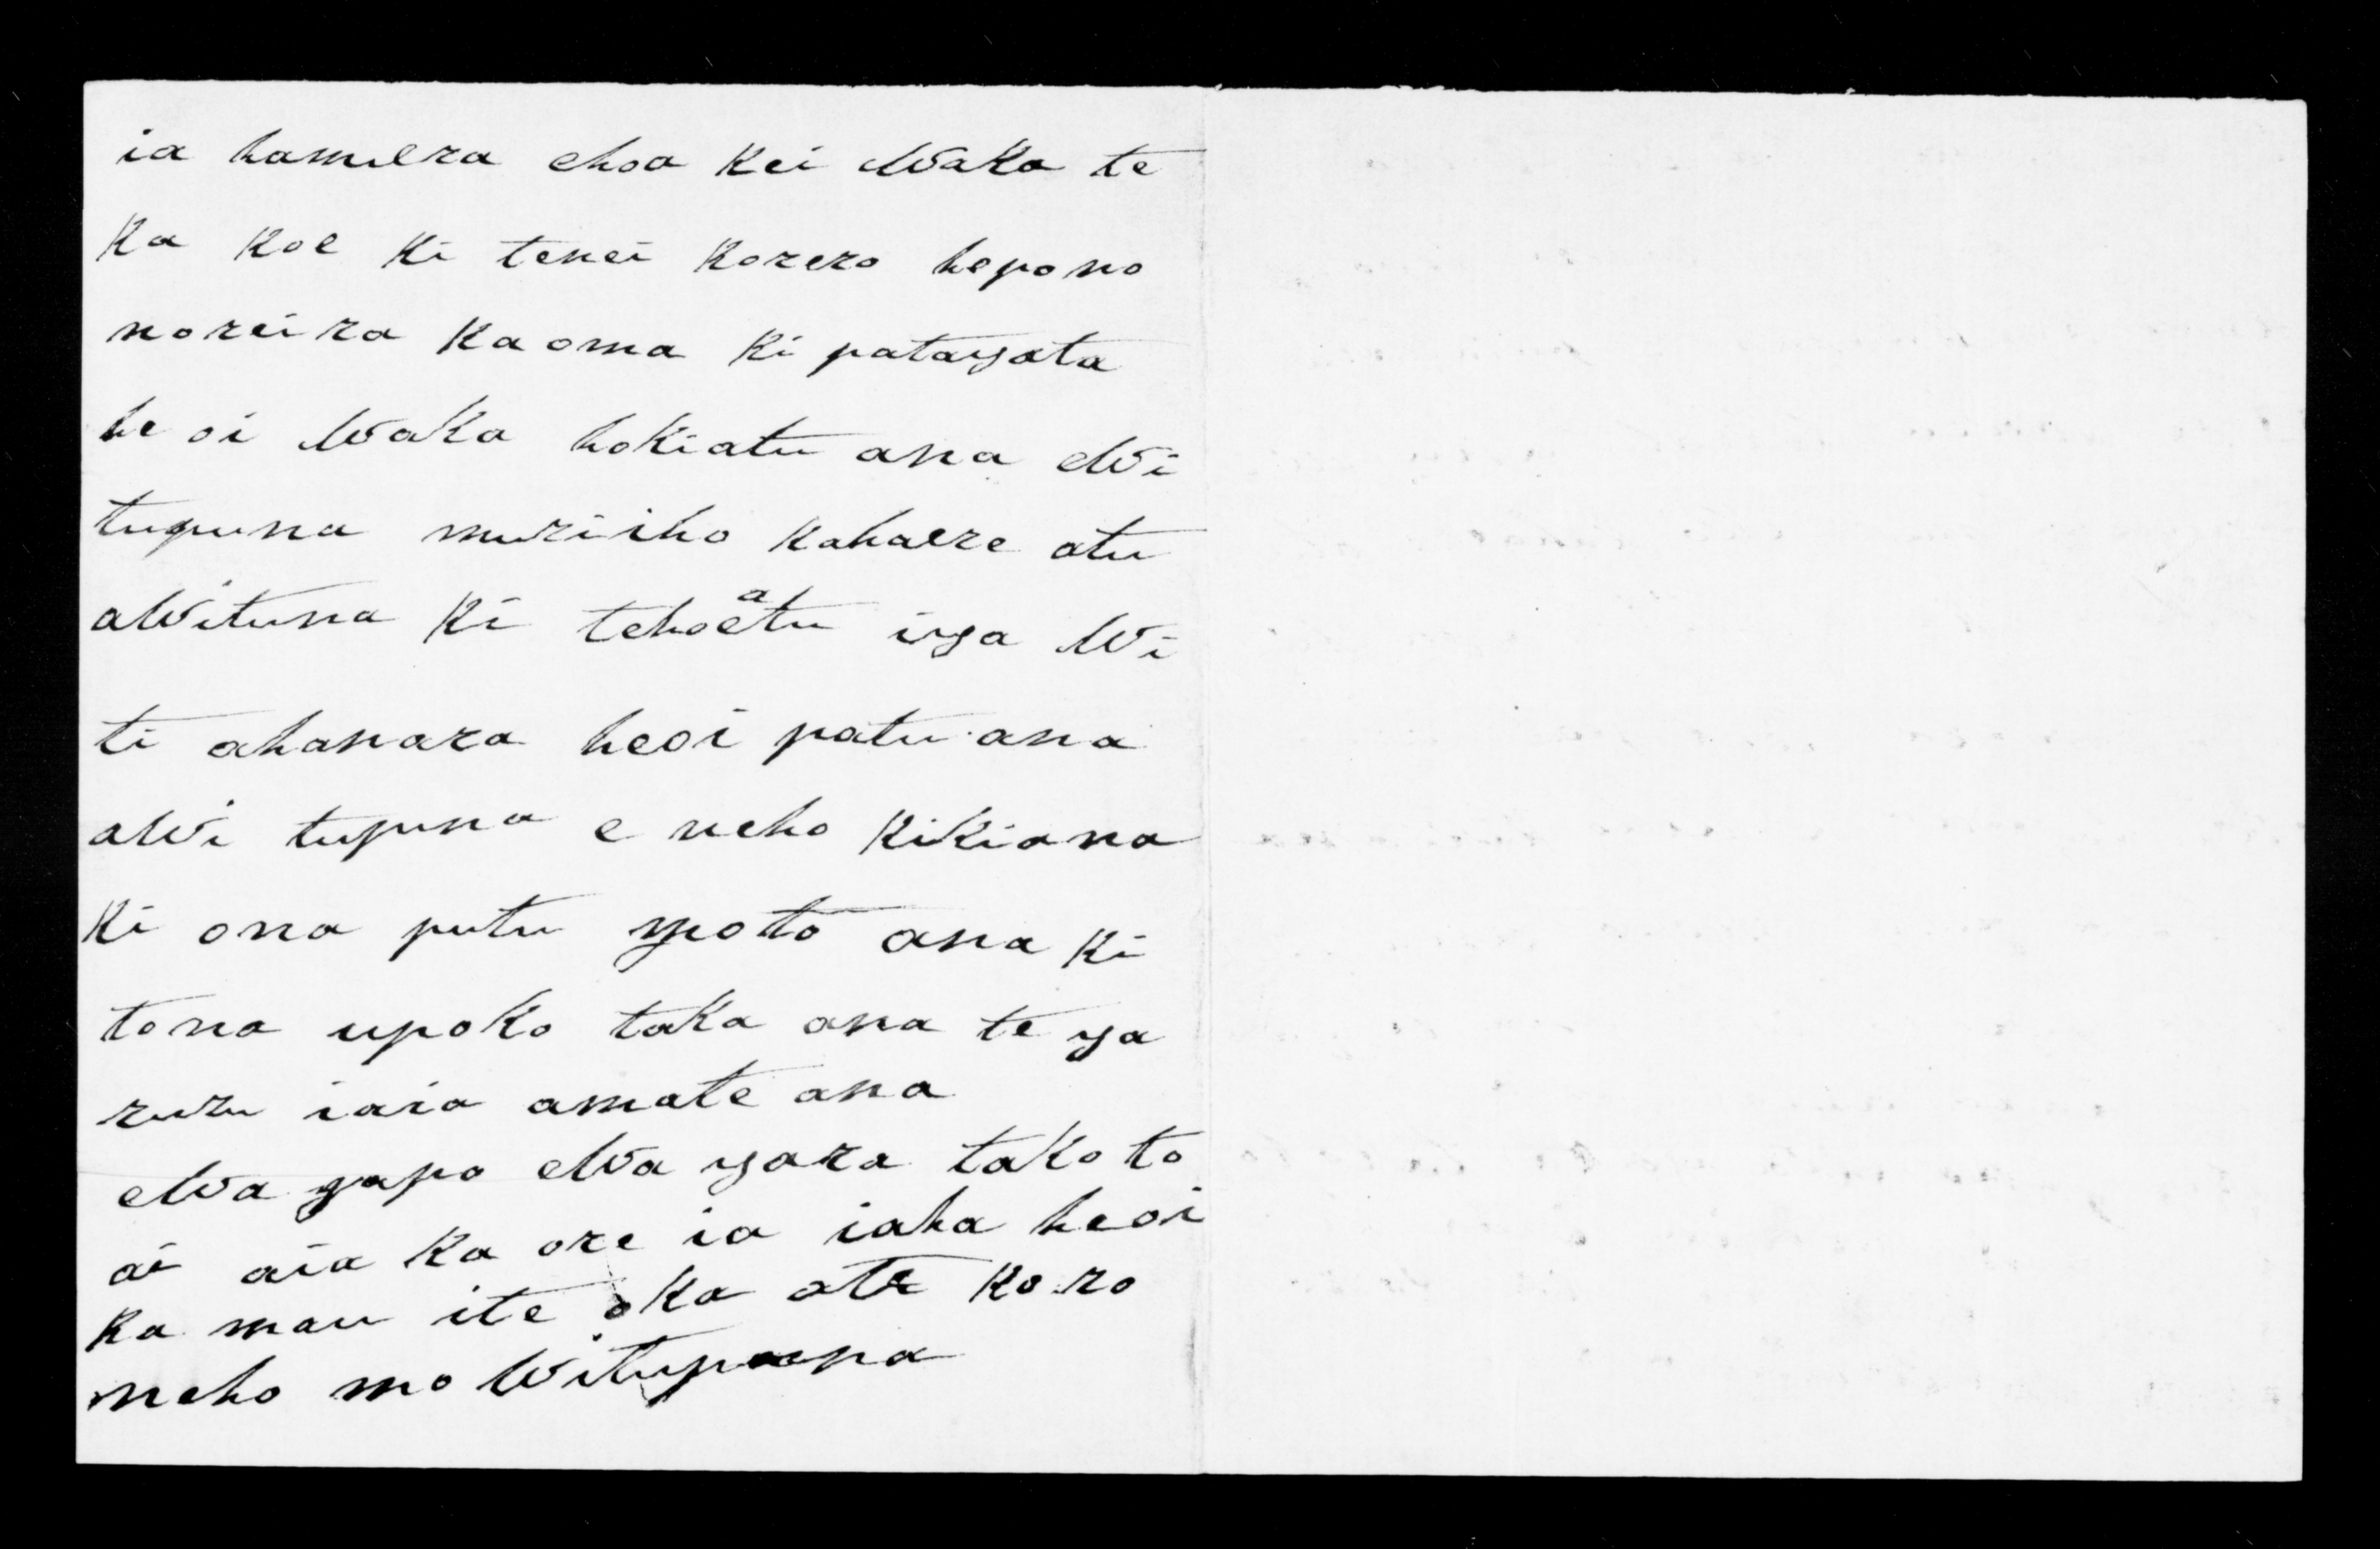 ia hamuera ehoa kei Waka te
ka koe ki tenei korero hepono
noreira kaoma ki patangata
he oi Waka hokiatu ana eWi
tupuna muriiho kahaere atu
aWituna ki tehoatu inga Wi
ti ahanara heoi patu ana
aWi tupuna e neho kikiana
ki ona putu moto ana ki
tona upoko taka ana te nga
ruru iaia amate ana
eWa gapo eWa ngara takoto
ai aia ka ore ia iaha heoi
ka mau ite oka ate koro
neho mo Witupuna